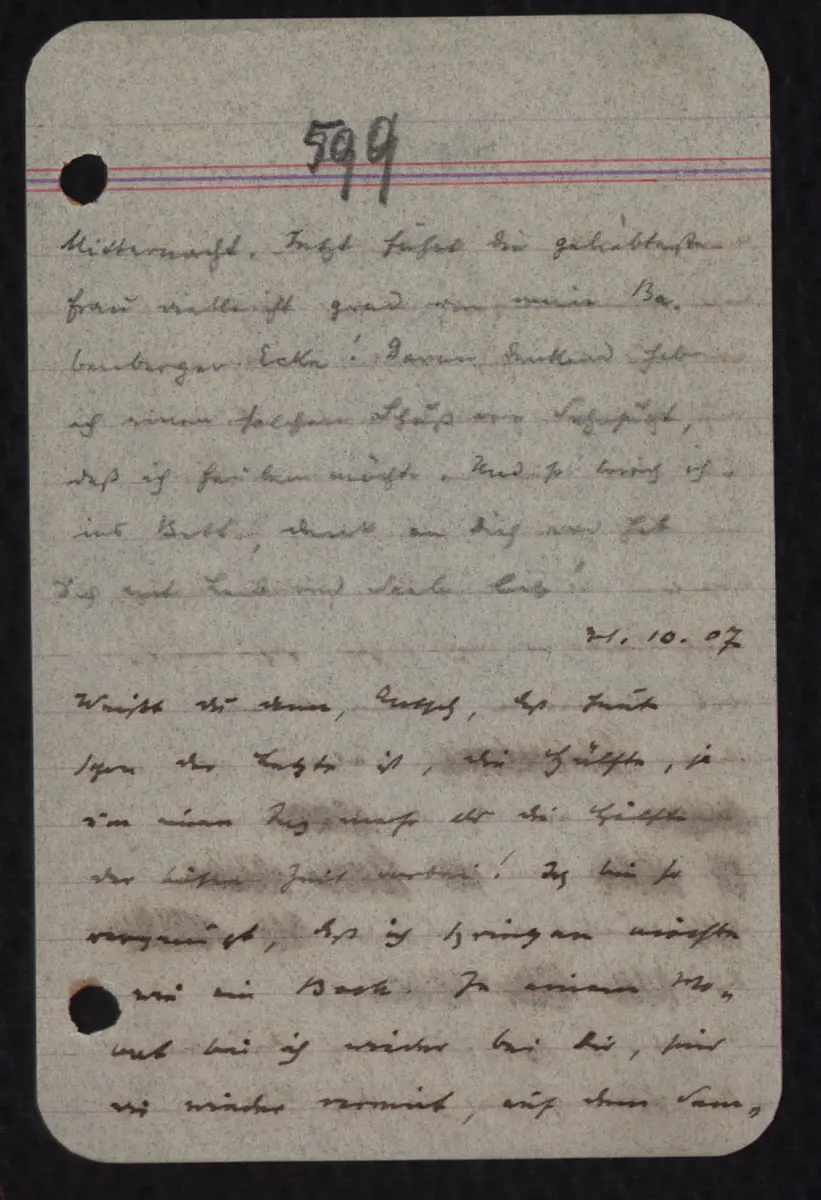 599
Mitternacht. Jetzt fährt die geliebteste
Frau vielleicht grad um meine Ba-
benberger Ecke! Daran denkend hab
ich einen solchen Schuß von Sehnsucht,
daß ich heulen möchte. Und so kriech ich
ins Bett, denk an Dich und hab
Dich mit Leib und Seele lieb!
31. 10. 07
Weißt du denn, daß heute
schon der Letzte ist, die Hälfte, ja
um einen Tag mehr als die Hälfte
der bösen Zeit vorbei! Ich bin so
vergnügt, daß ich springen möchte
wie ein Bock. In einem Mo-
nat bin ich wieder bei Dir, sind
wir wieder vereint, auf dem Sem-